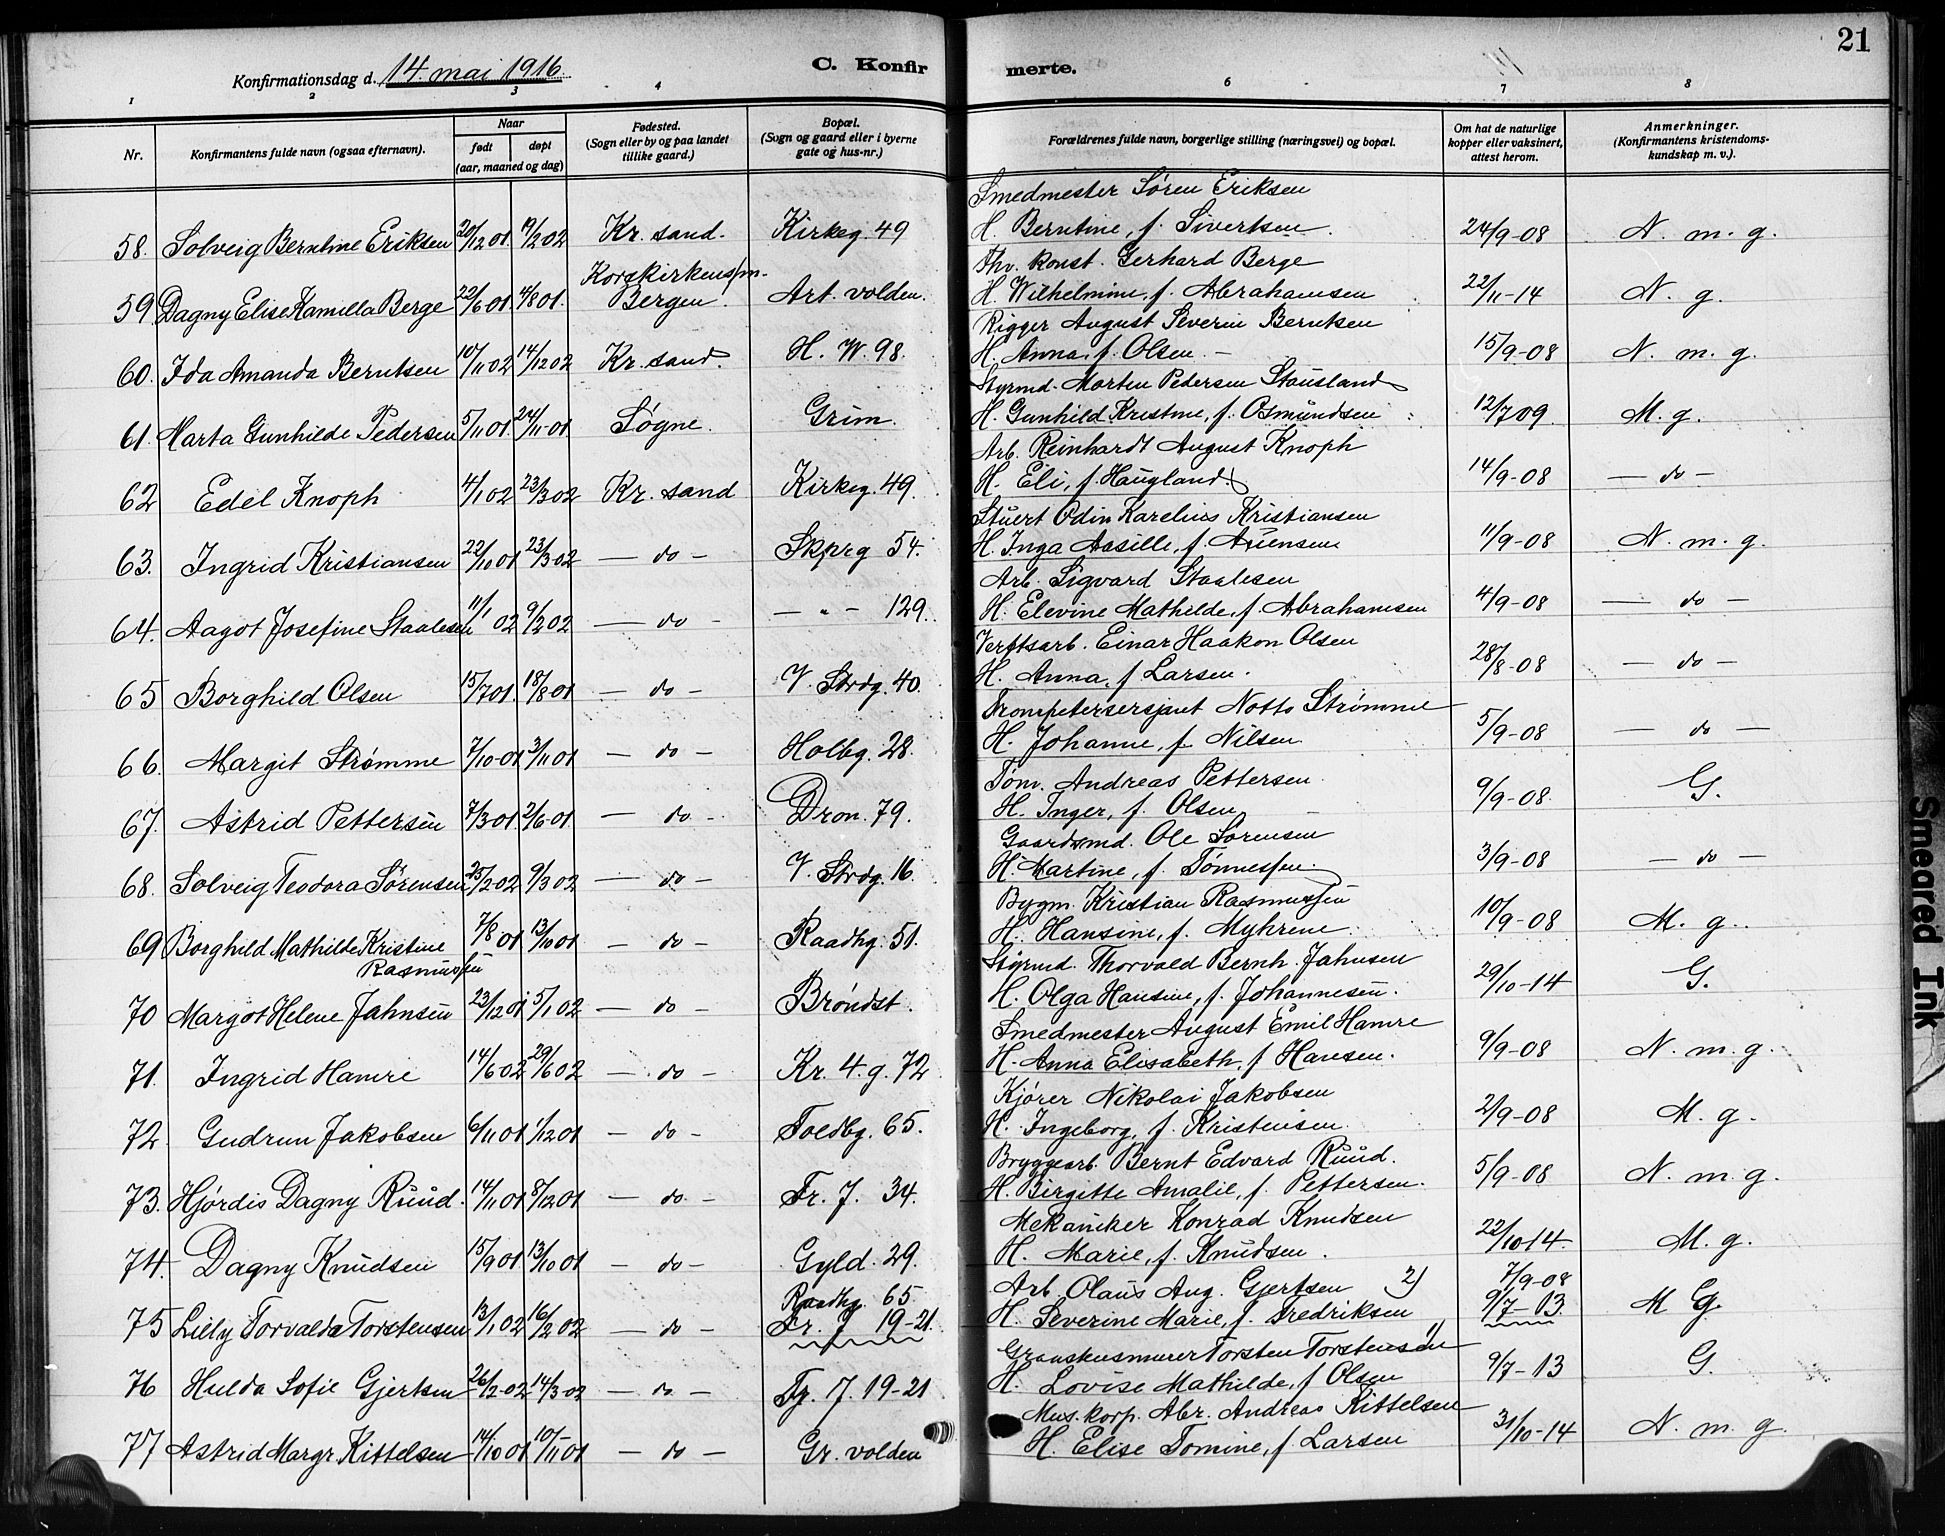 21
Konfirmationsdag d. 14. mai 1916
C. Konfirmerte.
1 2 3 4 6 7 8
Nr.
Konfirmantens fulde navn (ogsaa efternavn).
Naar
født
døpt
(aar, maaned og dag)
Fødested.
(Sogn eller by og paa landet
tillike gaard.)
Bopæl.
(Sogn og gaard eller i byerne
gate og hus-nr.)
Forældrenes fulde navn, borgerlige stilling (næringsvei) og bopæl.
Om hat de naturlige
kopper eller vaksinert,
attest herom.
Anmerkninger.
(Konfirmantens kristendoms-
kundskap m. v.).
Smedmester Søren Eriksen
58. Solveig Berntine Eriksen 20/12 01. 19/2 02 Kr. sand. Kirkeg. 49 H. Berntine, f. Sivertsen. 24/9-08 N. m. g.
Korskirkens pr. Thv. konst. Gerhard Berge
59 Dagny Elise Kamilla Berge 22/6 01. 4/8 01. Bergen. Art. volden. H. Wilhelmine, f. Abrahamsen 22/11-14 N. g.
Rigger August Severin Berntsen
60. Ida Amanda Berntsen 10/11 02 14/12 02 Kr. sand. H. W. 98. H. Anna, f. Olsen. - 15/9-08 N. m. g.
Styrmd. Morten Pedersen Stausland
61. Marta Gunhilde Pedersen 5/11 01. 24/11 01 Søgne. Grim. H. Gunhild Kristine, f. Osmundsen 12/7 09. M. g.
Arb. Reinhardt August Knoph
62 Edel Knoph 4/1 02 23/3 02 Kr. sand Kirkeg. 49. H. Eli, f. Haugland. 14/9-08 — do —
Stuert Odin Karelius Kristiansen
63. Ingrid Kristiansen 22/10 01 23/3 02 — do — Skprg 54. H. Inga Aasille, f. 11/9-08 N. m. g.
Arb. Sigvard Staalesen
64. Aagot Josefine Staalesen 11/1 02 9/2 02 — do — — " — 129. H. Elevine Mathilde, f. Abrahamsen 4/9-08 — do —
Verftsarb. Einar Haakon Olsen
65 Borghild Olsen 15/7 01. 18/8 01 — do — V. Strdg. 40. H. Anna, f. Larsen. 28/8-08 — do —
Trompetersersjant Notto Strømme
66. Margit Strømme 7/10-01 3/11 01 — do — Holbg. 28. H. Johanne, f. Nilsen 5/9-08 — do —
Tøm. Andreas Pettersen.
67. Astrid Pettersen 7/3 01 2/6-01 — do — Dron. 79. H. Inger, f. Olsen. 9/9-08. G.
Gaardsmd. Ole Sørensen
68. Solveig Teodora Sørensen 25/2-02 9/3 02 — do — V. Strdg. 16 H. Martine, f. Tønnessen. 3/9-08 — do —
Bygm. Kristian Rasmussen
69 Borghild Mathilde Kristine 7/8 01 13/10 01 — do — Raadhg. 51. H. Hansine, f. Myhrene. 10/9-08 M. g.
Rasmussen Styrmd. Thorvald Bernh. Jahnsen
70 Margot Helene Jahnsen 23/12 01 5/1 02 — do — Brøndst. H. Olga Hansine, f. Johannesen. 29/10-14 G.
Smedmester August Emil Hamre
71. Ingrid Hamre 14/6 02 29/6 02 — do — Kr. 4. g. 72 H. Anna Elisabeth, f. Hansen. 9/9-08 N. m. g.
Kjører Nikolai Jakobsen
72 Gudrun Jakobsen 6/11 01 1/12 01 — do — Toldbg. 65. H. Ingeborg, f. Kristensen 2/9-08 M. g.
Bryggearb. Bernt Edvard Ruud.
73. Hjørdis Dagny Ruud. 14/11 01 8/12 01 — do. — Fr. 7. 34. H. Birgitte Amalie, f. Pettersen. 5/9-08 N. m. g.
Mekaniker Konrad Knudsen
74. Dagny Knudsen 15/9 01 13/10 01 — do — Gyld. 29. H. Marie, f. Knudsen. 22/10-14. M. g.
Raadhg. 65 Arb Olaus Aug. Gjertsen 2) 7/9-08
75 Lilly Torvalda Torstensen 13/1 02 16/2 02 — do — Fr. 7 19-21. H. Severine Marie, f. Fredriksen 9/7-13 M G.
Torsten Torstensen 1)
76 Hulda Sofie Gjertsen 26/2-02 14/3-02 — do — Fr. 7. 19-21 H. Lovise Mathilde, f Olsen 9/7-13 G.
Mus. korp. Abr. Andreas Kittelsen
77 Astrid Margr. Kittelsen 14/10 01 10/11 01 — do — Gr. volden H. Elise Tomine, f. Larsen 31/10-14 N. m. g.
Smeared Ink